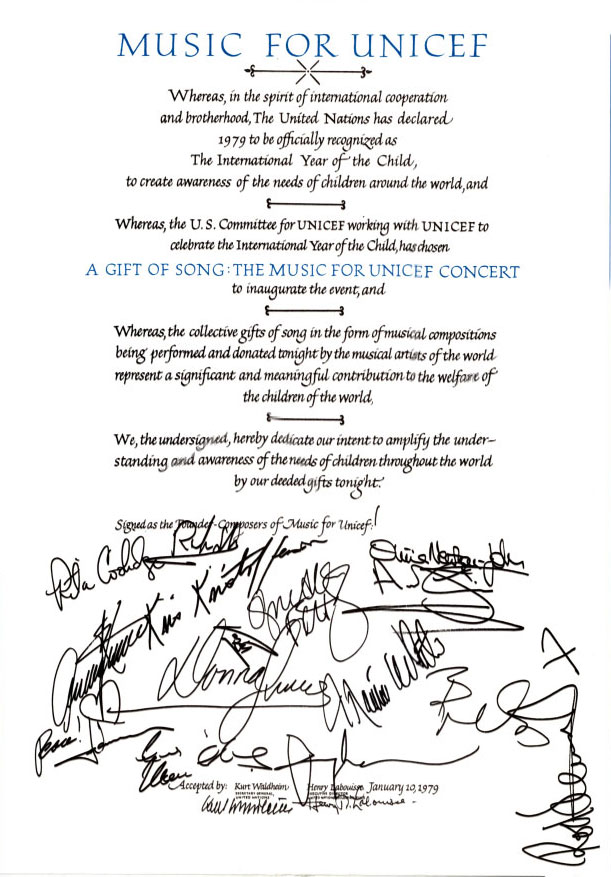 MUSIC FOR UNICEF
Whereas, in the spirit of international cooperation
and brotherhood, The United Nations has declared
1979 to be officially recognized as
The International Year of the Child,
to create awareness of the needs of children around the world, and
Whereas, the U.S. Committee for UNICEF working with UNICEF to
celebrate the International Year of the Child, has chosen
A GIFT OF SONG: THE MUSIC FOR UNICEF CONCERT
to inaugurate the event, and
Whereas, the collective gifts of song in the form of musical compositions
being performed and donated tonight by the musical artists of the world
represent a significant and meaningful contribution to the welfare of
the children of the world,
We, the undersigned, hereby dedicate our intent to amplify the under-
standing and awareness of the needs of children throughout the world
by our deeded gifts tonight.
Signed as the Founder-Composers of Music for Unicef:
Rita Coolidge
Kris Kristofferson
Olivia Newton-John
Donna Summer
Peace!
Accepted by: Kurt Waldheim Henry Labouisse January 10, 1979
SECRETARY GENERAL,
UNITED NATIONS